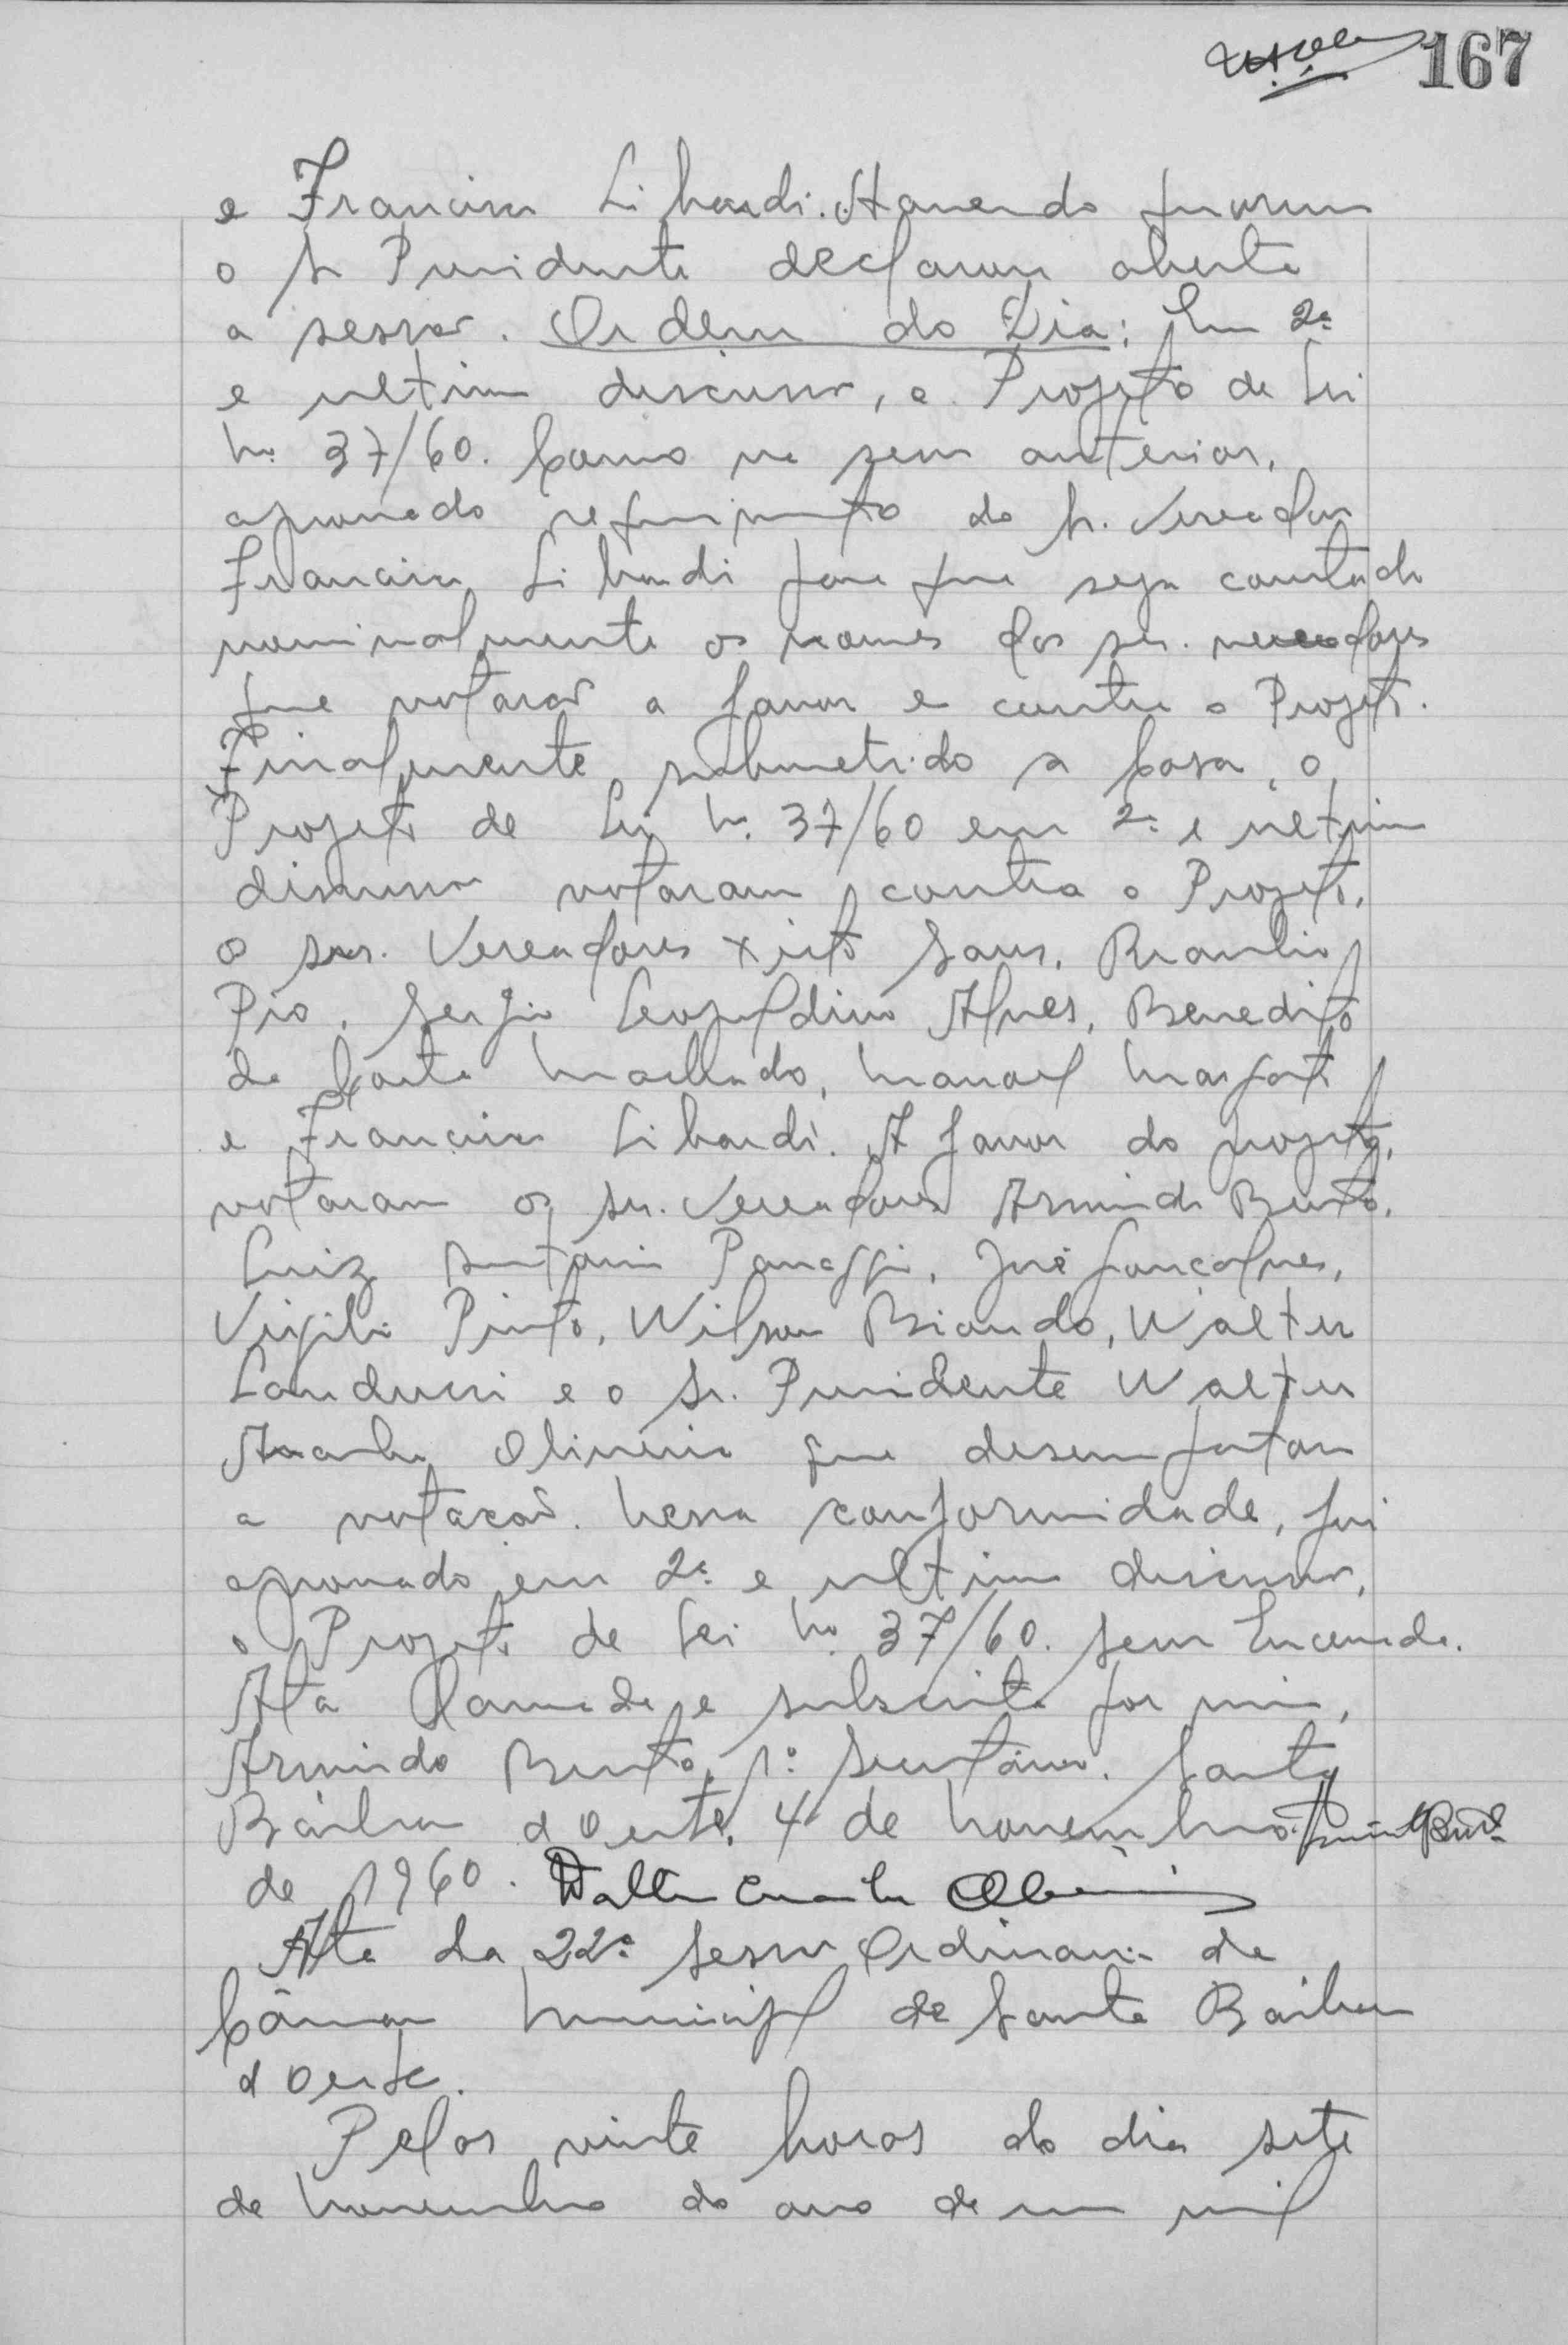 167
e Francisco Libardi. Havendo quorum
o Sr Presidente declarou aberta
a sessão. Ordem do Dia: Em 2ª
e ultima discussão, o Projeto de Lei
Nº 37/60. Como na sessão anterior,
aprovado requerimento do Sr. Vereador
Francisco Libardi para que seja constado
nominalmente os nomes dos srs. vereadores
que votarão a favor e contra o Projeto.
Finalmente submetido a Casa, o
Projeto de Lei Nº 37/60 em 2ª e ultima
discussão votaram contra o Projeto,
os srs. Vereadores Braulio
Pio, Sergio Leopoldino Alves, Benedito
da Costa Machado, Manoel
e Francisco Libardi. A favor do projeto,
votaram os srs. Vereadores Armindo Bento,
Luiz Antonio Panaggio, José Gonçalves,
Virgilio Pinto, Wilson Biondo, Walter
Landucci e o Sr. Presidente Walter
Oliverio que desempatou
a votação. Nessa conformidade, foi
aprovado em 2ª e ultima discussão,
o Projeto de Lei Nº 37/60. Sem Emenda.
Ata lavrada e subscrita por mim,
Armindo Bento, 1º Secretário. Santa
Bárbara d'Oeste, 4 de Novembro
de 1960.
Ata da 22ª Sessão Ordinaria da
Câmara Municipal de Santa Bárbara
d Oeste.
Pelas vinte horas do dia sete
de Novembro do ano de um mil